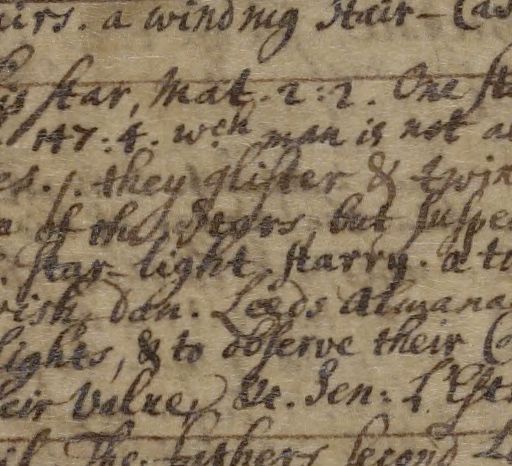 airs. a winding Stair-Cas
his star, Mat. 2:2. One sta
147:4. wch man is not a
es. /. they glister & twin
of the Stars, but suspe
Star-light, starry. a to
rish, Dan. Leeds Almana
lights, & to observe their C
eir value, &c. Sen:
The fathers second